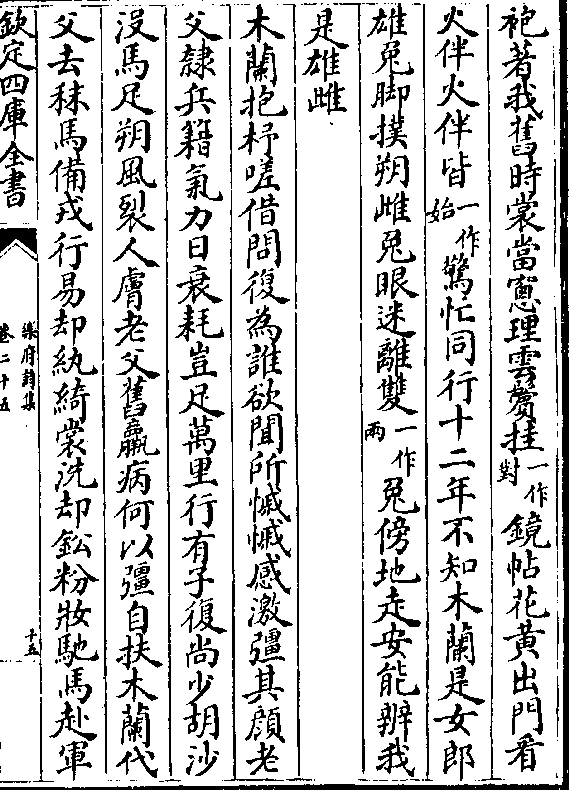 袍著我舊時裳當窻理雲鬢挂一作對鏡帖花黃出門看
火伴火伴皆一作始驚忙同行十二年不知木蘭是女郎
雄兔脚撲朔雌兔眼迷離雙一作兩兔傍地走安能辨我
是雄雌
木蘭抱杼嗟借問復為誰欲聞所慽慽感激彊其顔老
父隸兵籍氣力日衰耗豈足萬里行有子復尚少胡沙
没馬足朔風裂人膚老父舊羸病何以彊自扶木蘭代
父去秣馬備戎行易却紈綺裳洗却鈆粉妝馳馬赴軍
欽定四庫全書
樂府詩集
卷二十五
十五